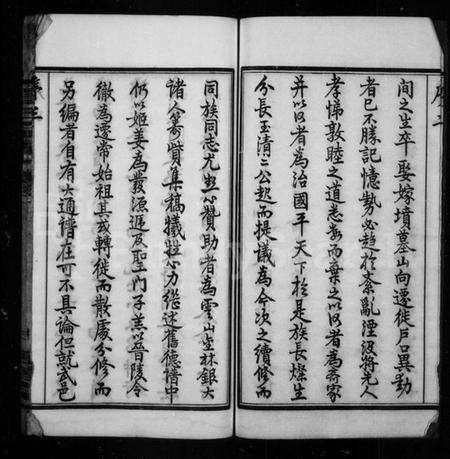 序二
間之生卒娶嫁墳墓山向遷徙戶口異動
者已不勝記憶勢必趨於紊亂湮没將先人
孝悌敦睦之道志為而棄之以以者為齊家
并以以者為治國平天下於是族長燦生
分長玉清二公起而提議為今次之續修而
同族同志尤熱心贊助者為雲山玉林銀大
諸人籌貲集稿犧牲心力继述舊德譜中
仍以姬姜為發源遞及聖門子羔以晋陵令
徹為遷常始祖其或轉徙而散處分修而
另編者自有大通譜在可不具論但就武邑
序三